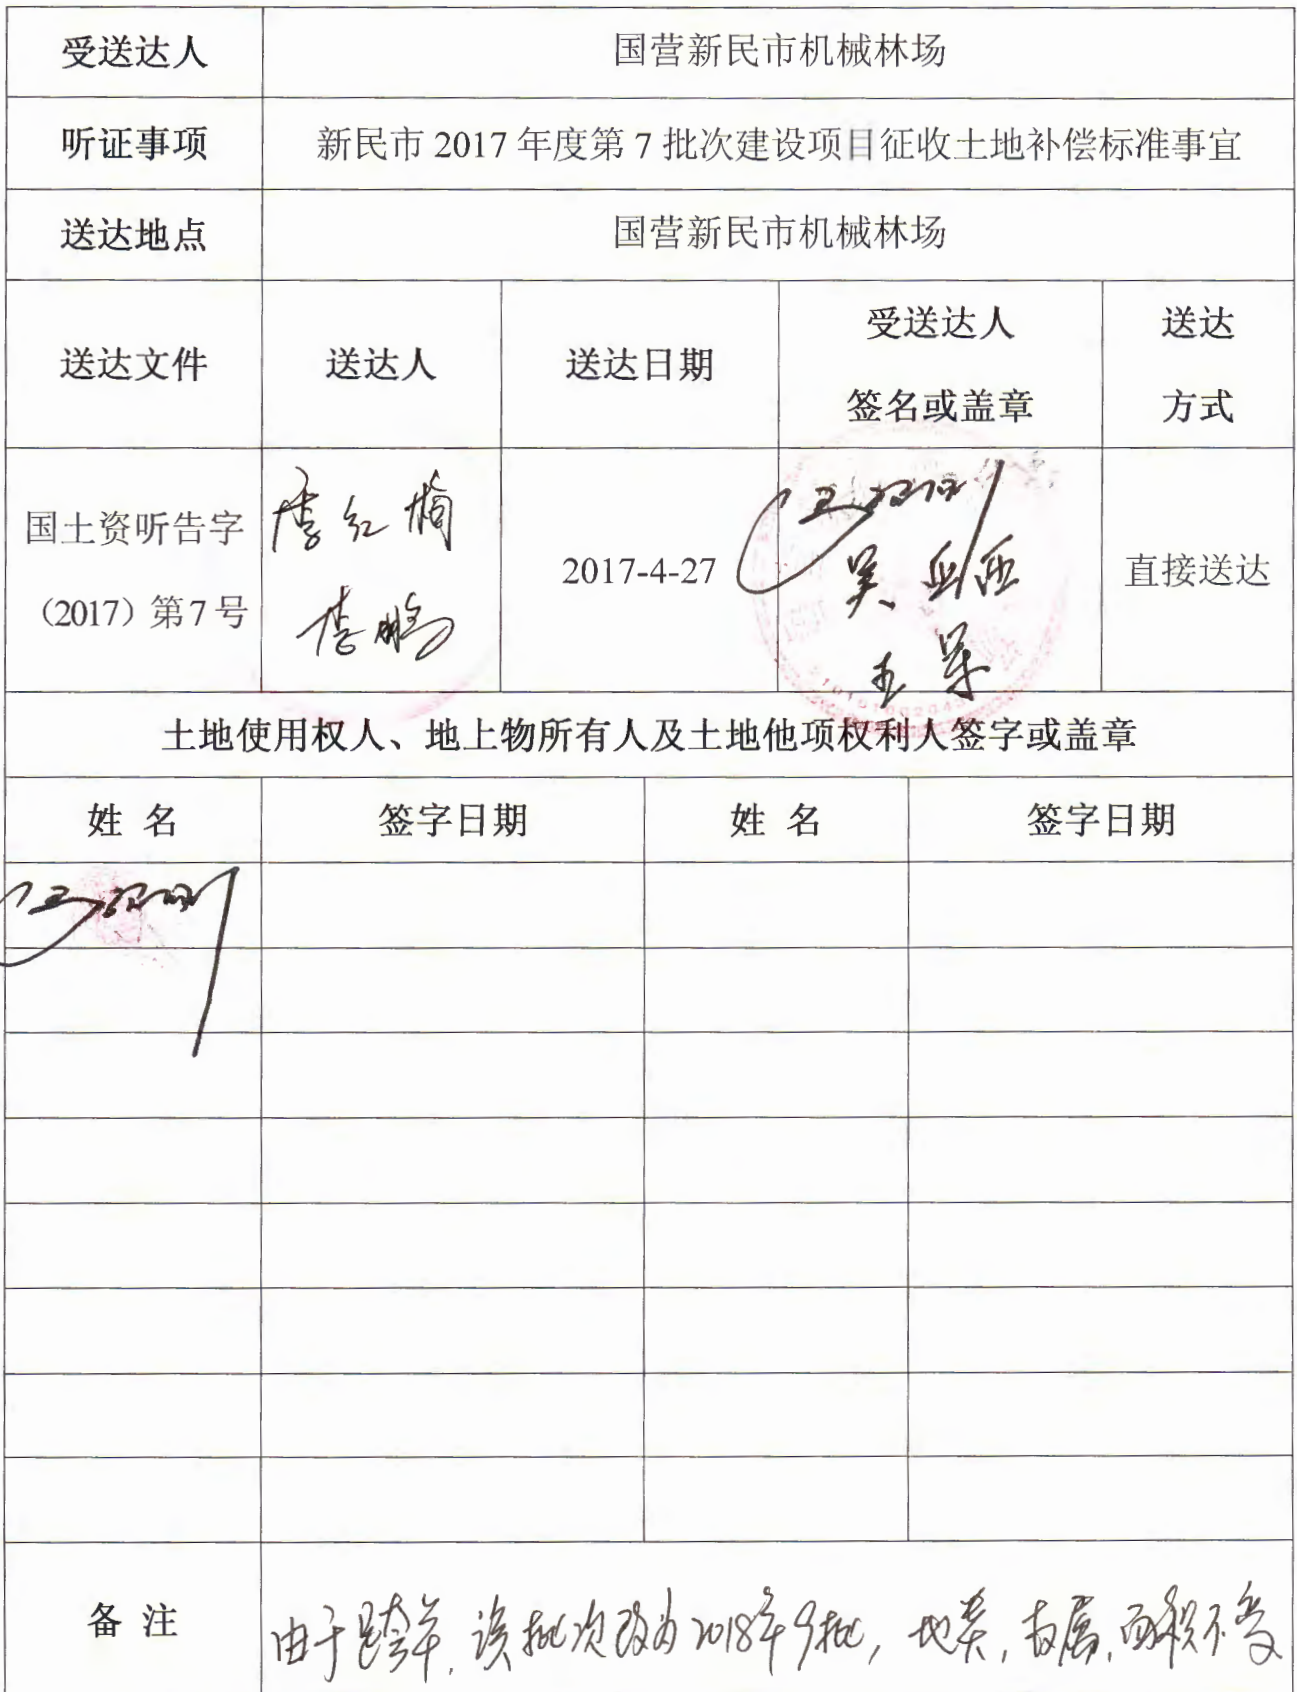 受送达人 国营新民市机械林场
听证事项 新民市 2017 年度第 7 批次建设项目征收土地补偿标准事宜
送达地点 国营新民市机械林场
送达文件 送达人 送达日期 受送达人 签名或盖章 送达 方式
国土资听告字
（2017）第 7 号
李红楠
李鹏
2017-4-27
直接送达
土地使用权人、地上物所有人及土地他项权利人签字或盖章
姓 名 签字日期 姓 名 签字日期
备 注 由于跨年, 该批次改为2018年9批, 地类, 权属, 面积不变